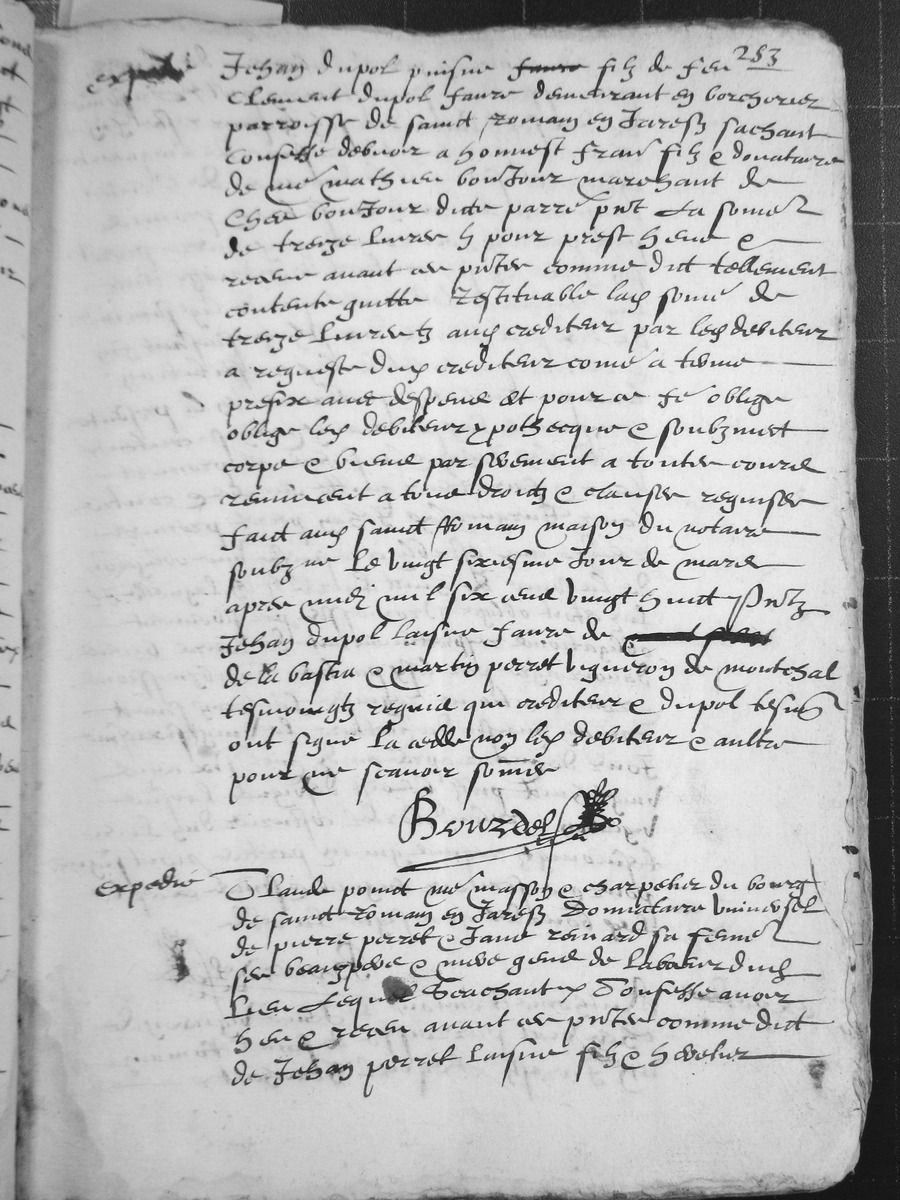 253
expedie Jehan dupol puisne faure filz de feu
Clement dupol faure demeurant en borcherier
parroisse de sainct romain en Jarestz sachant
Confesse debvoir a honnest frans filz & donataire
de me mathieu bonJour marchant de
bonJour dicte parre pnt La somme
de treize livres tz pour prest heue &
receue avant ces pntes comme dict tellement
contente quitte Restituable lad somme de
treize livres tz aud crediteur par led debiteur
a requeste dud crediteur comme a terme
prefix avec despens Et pour ce fe oblige
oblige led debiteur ypothecque & soubzmect
corps & biens par serement a toutes cours
renuncent a tous droictz & clauses requises
faict aud sainct Romain maison du notaire
soubz ne Le vingt sixiesme Jour de mars
apres midi mil six cens vingt huict Pntz
Jehan dupol laisne faure de
de la bastia & martin perret vigneron de montchal
tesmoingtz requis qui crediteur & dupol tesm
ont signe La cedde non led debiteur & aultre
pour ne scavoir sommes
Bourdel
expedie Claude poinct me masson & charpetier du bourg
de sainct romain en Jarestz Donnataire universel
de pierre perret & Jane reinard sa femme
ses beauxpere & mere gens de labeur dud
Lieu Lequel Seachant Confesse avoir
heu & receu avant ces pntes comme dict
de Jehan perret laisne filz & heretier